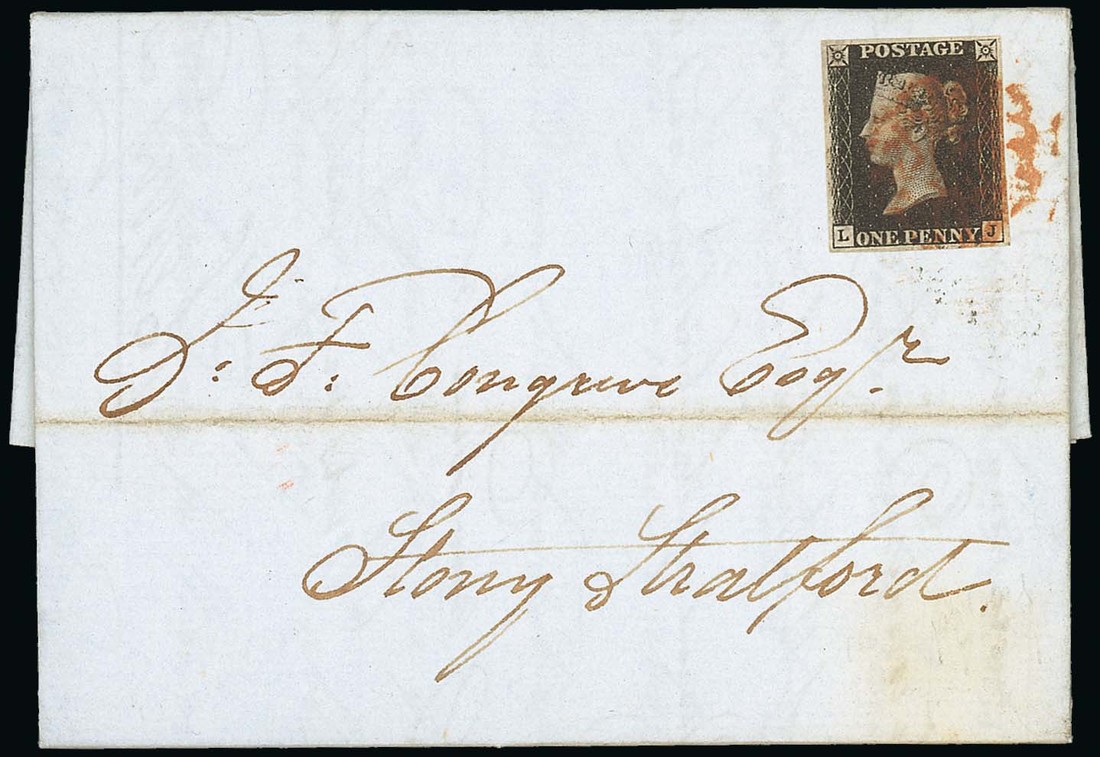 POSTAGE
L ONE PENNY J
D: F: Congreve Esqr.
Stony Stratford.